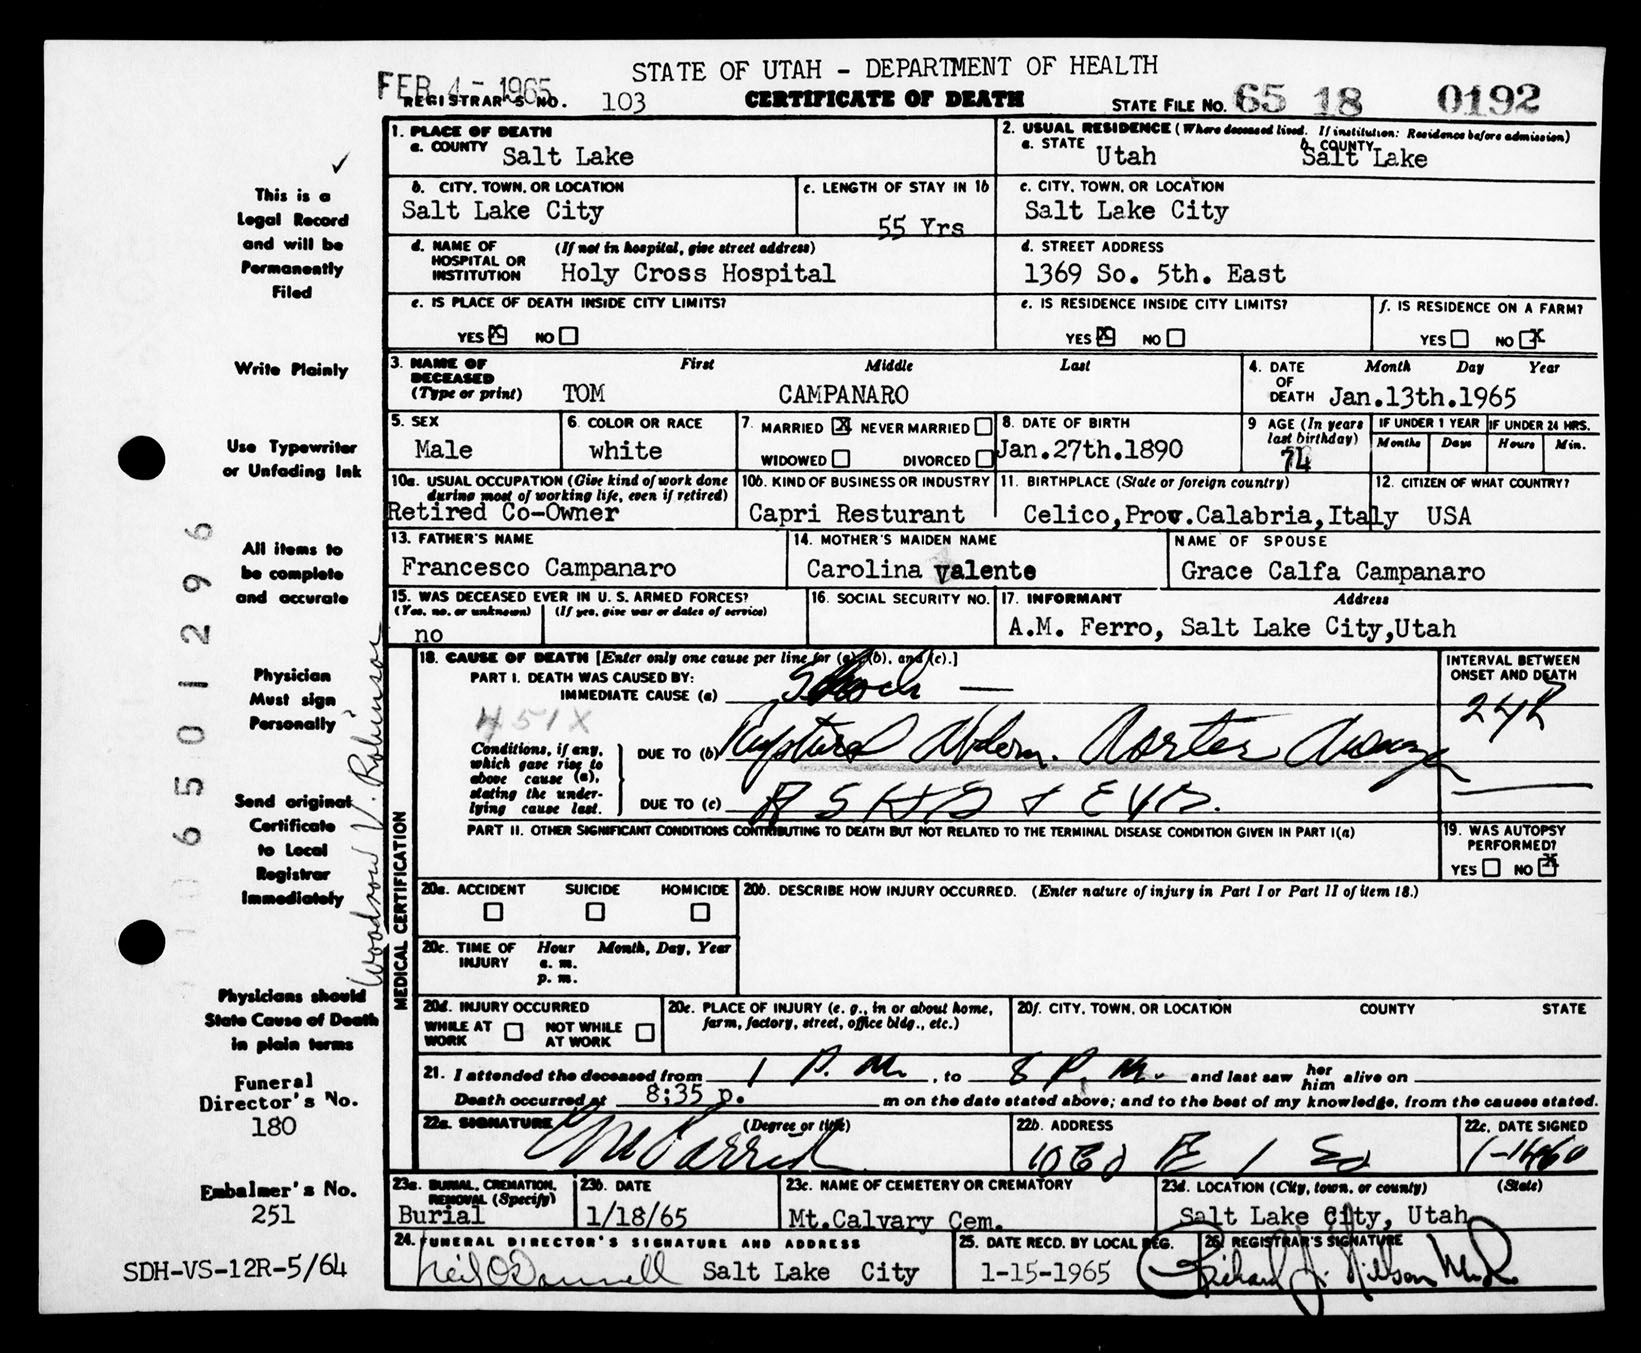 STATE OF UTAH - DEPARTMENT OF HEALTH
FEB 4 - 1965
REGISTRAR'S NO. 103 CERTIFICATE OF DEATH STATE FILE NO. 65 18 0192
1. PLACE OF DEATH
a. COUNTY Salt Lake
2. USUAL RESIDENCE (Where deceased lived. If institution: Residence before admission)
a. STATE Utah b. COUNTY Salt Lake
b. CITY, TOWN, OR LOCATION
Salt Lake City
c. LENGTH OF STAY IN 1b
55 Yrs
c. CITY, TOWN, OR LOCATION
Salt Lake City
d. NAME OF HOSPITAL OR INSTITUTION (If not in hospital, give street address)
Holy Cross Hospital
d. STREET ADDRESS
1369 So. 5th. East
e. IS PLACE OF DEATH INSIDE CITY LIMITS?
YES X NO
e. IS RESIDENCE INSIDE CITY LIMITS?
YES X NO
f. IS RESIDENCE ON A FARM?
YES NO X
3. NAME OF DECEASED (Type or print) First Middle Last
TOM CAMPANARO
4. DATE OF DEATH Month Day Year
Jan.13th.1965
5. SEX
Male
6. COLOR OR RACE
white
7. MARRIED X NEVER MARRIED
WIDOWED DIVORCED
8. DATE OF BIRTH
Jan.27th.1890
9 AGE (In years last birthday)
74
IF UNDER 1 YEAR
Months Days
IF UNDER 24 HRS.
Hours Min.
10a. USUAL OCCUPATION (Give kind of work done during most of working life, even if retired)
Retired Co-Owner
10b. KIND OF BUSINESS OR INDUSTRY
Capri Resturant
11. BIRTHPLACE (State or foreign country)
Celico,Prov.Calabria,Italy
12. CITIZEN OF WHAT COUNTRY?
USA
13. FATHER'S NAME
Francesco Campanaro
14. MOTHER'S MAIDEN NAME
Carolina valente
NAME OF SPOUSE
Grace Calfa Campanaro
15. WAS DECEASED EVER IN U. S. ARMED FORCES?
(Yes, no, or unknown) (If yes, give war or dates of service)
no
16. SOCIAL SECURITY NO.
17. INFORMANT Address
A.M. Ferro, Salt Lake City,Utah
MEDICAL CERTIFICATION
18. CAUSE OF DEATH [Enter only one cause per line for (a), (b), and (c).]
PART I. DEATH WAS CAUSED BY:
IMMEDIATE CAUSE (a) Shock
451X
Conditions, if any, which gave rise to above cause (a), stating the underlying cause last.
DUE TO (b) Ruptured Abdom.
DUE TO (c)
INTERVAL BETWEEN ONSET AND DEATH
PART II. OTHER SIGNIFICANT CONDITIONS CONTRIBUTING TO DEATH BUT NOT RELATED TO THE TERMINAL DISEASE CONDITION GIVEN IN PART I(a)
19. WAS AUTOPSY PERFORMED?
YES NO X
20a. ACCIDENT SUICIDE HOMICIDE
20b. DESCRIBE HOW INJURY OCCURRED. (Enter nature of injury in Part I or Part II of item 18.)
20c. TIME OF INJURY Hour Month, Day, Year
a. m.
p. m.
20d. INJURY OCCURRED
WHILE AT WORK NOT WHILE AT WORK
20e. PLACE OF INJURY (e. g., in or about home, farm, factory, street, office bldg., etc.)
20f. CITY, TOWN, OR LOCATION COUNTY STATE
21. I attended the deceased from 1 P.M. , to 8 P.M. and last saw her him alive on
Death occurred at 8:35 p. m on the date stated above; and to the best of my knowledge, from the causes stated.
22a. SIGNATURE (Degree or title)
22b. ADDRESS
22c. DATE SIGNED
23a. BURIAL, CREMATION, REMOVAL (Specify)
Burial
23b. DATE
1/18/65
23c. NAME OF CEMETERY OR CREMATORY
Mt.Calvary Cem.
23d. LOCATION (City, town, or county) (State)
Salt Lake City, Utah
24. FUNERAL DIRECTOR'S SIGNATURE AND ADDRESS
Neil O'Donnell Salt Lake City
25. DATE RECD. BY LOCAL REG.
1-15-1965
26. REGISTRAR'S SIGNATURE
This is a
Legal Record
and will be
Permanently
Filed
Write Plainly
Use Typewriter
or Unfading Ink
All items to
be complete
and accurate
Physician
Must sign
Personally
Send original
Certificate
to Local
Registrar
Immediately
Physicians should
State Cause of Death
in plain terms
Funeral
Director's No.
180
Embalmer's No.
251
SDH-VS-12R-5/64
Woodrow V. Robinson
1 0 6 5 0 1 2 9 6